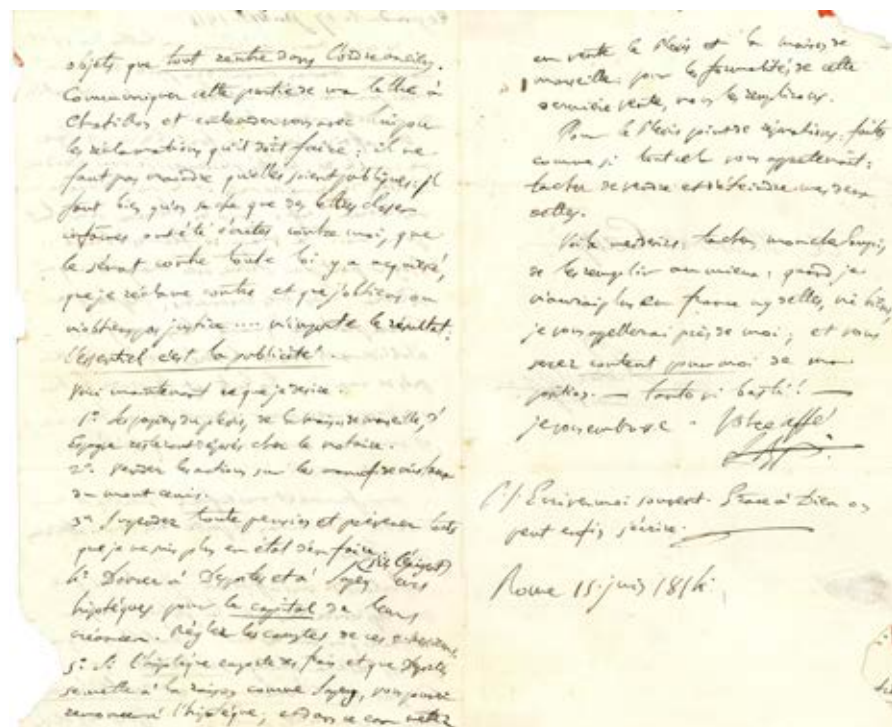 objets que tout rentre dans l'ordre
Communiquer cette partie de ma lettre à
Chatillon et entendez vous avec lui pour
les réclamations qu'il doit faire; il ne
faut pas craindre qu'elles soient publiques: il
faut bien qu'on sache que des lettres closes
infâmes ont été écrites contre moi, que
le sénat contre toute loi y a
que je réclame contre et que j'obtiens ou
n'obtiens pas justice .... n'importe le résultat:
l'essentiel c'est la publicité!
Voici maintenant ce que je désire.
1° Les papiers du plessis, de la maison de marseille, d'
Espagne resteront déposés chez le notaire.
2° vendez les actions sur les
du mont cenis.
3° Suspendez toute pension et prévenez
que je ne suis plus en état d'en faire
4° Donner à et à leurs
hipotéques pour le capital de leurs
créances. Régler les comptes de ces
5° Si l'hipotéque emporte des frais et que
se mette à la raison comme vous pouvez
renoncer à l'hipotéque, et dans ce cas mettez
en vente le Plessis et la maison de
marseille. pour les formalités de cette
dernière vente, vous les remplirez.
Pour le Plessis point de réparations. faites
comme si tout cela vous appartenait:
tachez de vendre et d'éteindre mes deux
dettes.
Voilà mes désirs. tachez mon cher
de les remplir au mieux: quand je
n'aurai plus en france ny dettes, ni biens,
je vous appellerai près de moi; et vous
serez content pour moi de ma
position. — tanto vi basti! —
je vous embrasse. Votre affé
P.S. Ecrivez moi souvent. Grace à Dieu on
peut enfin s'écrire.
Rome 15 juin 1814.